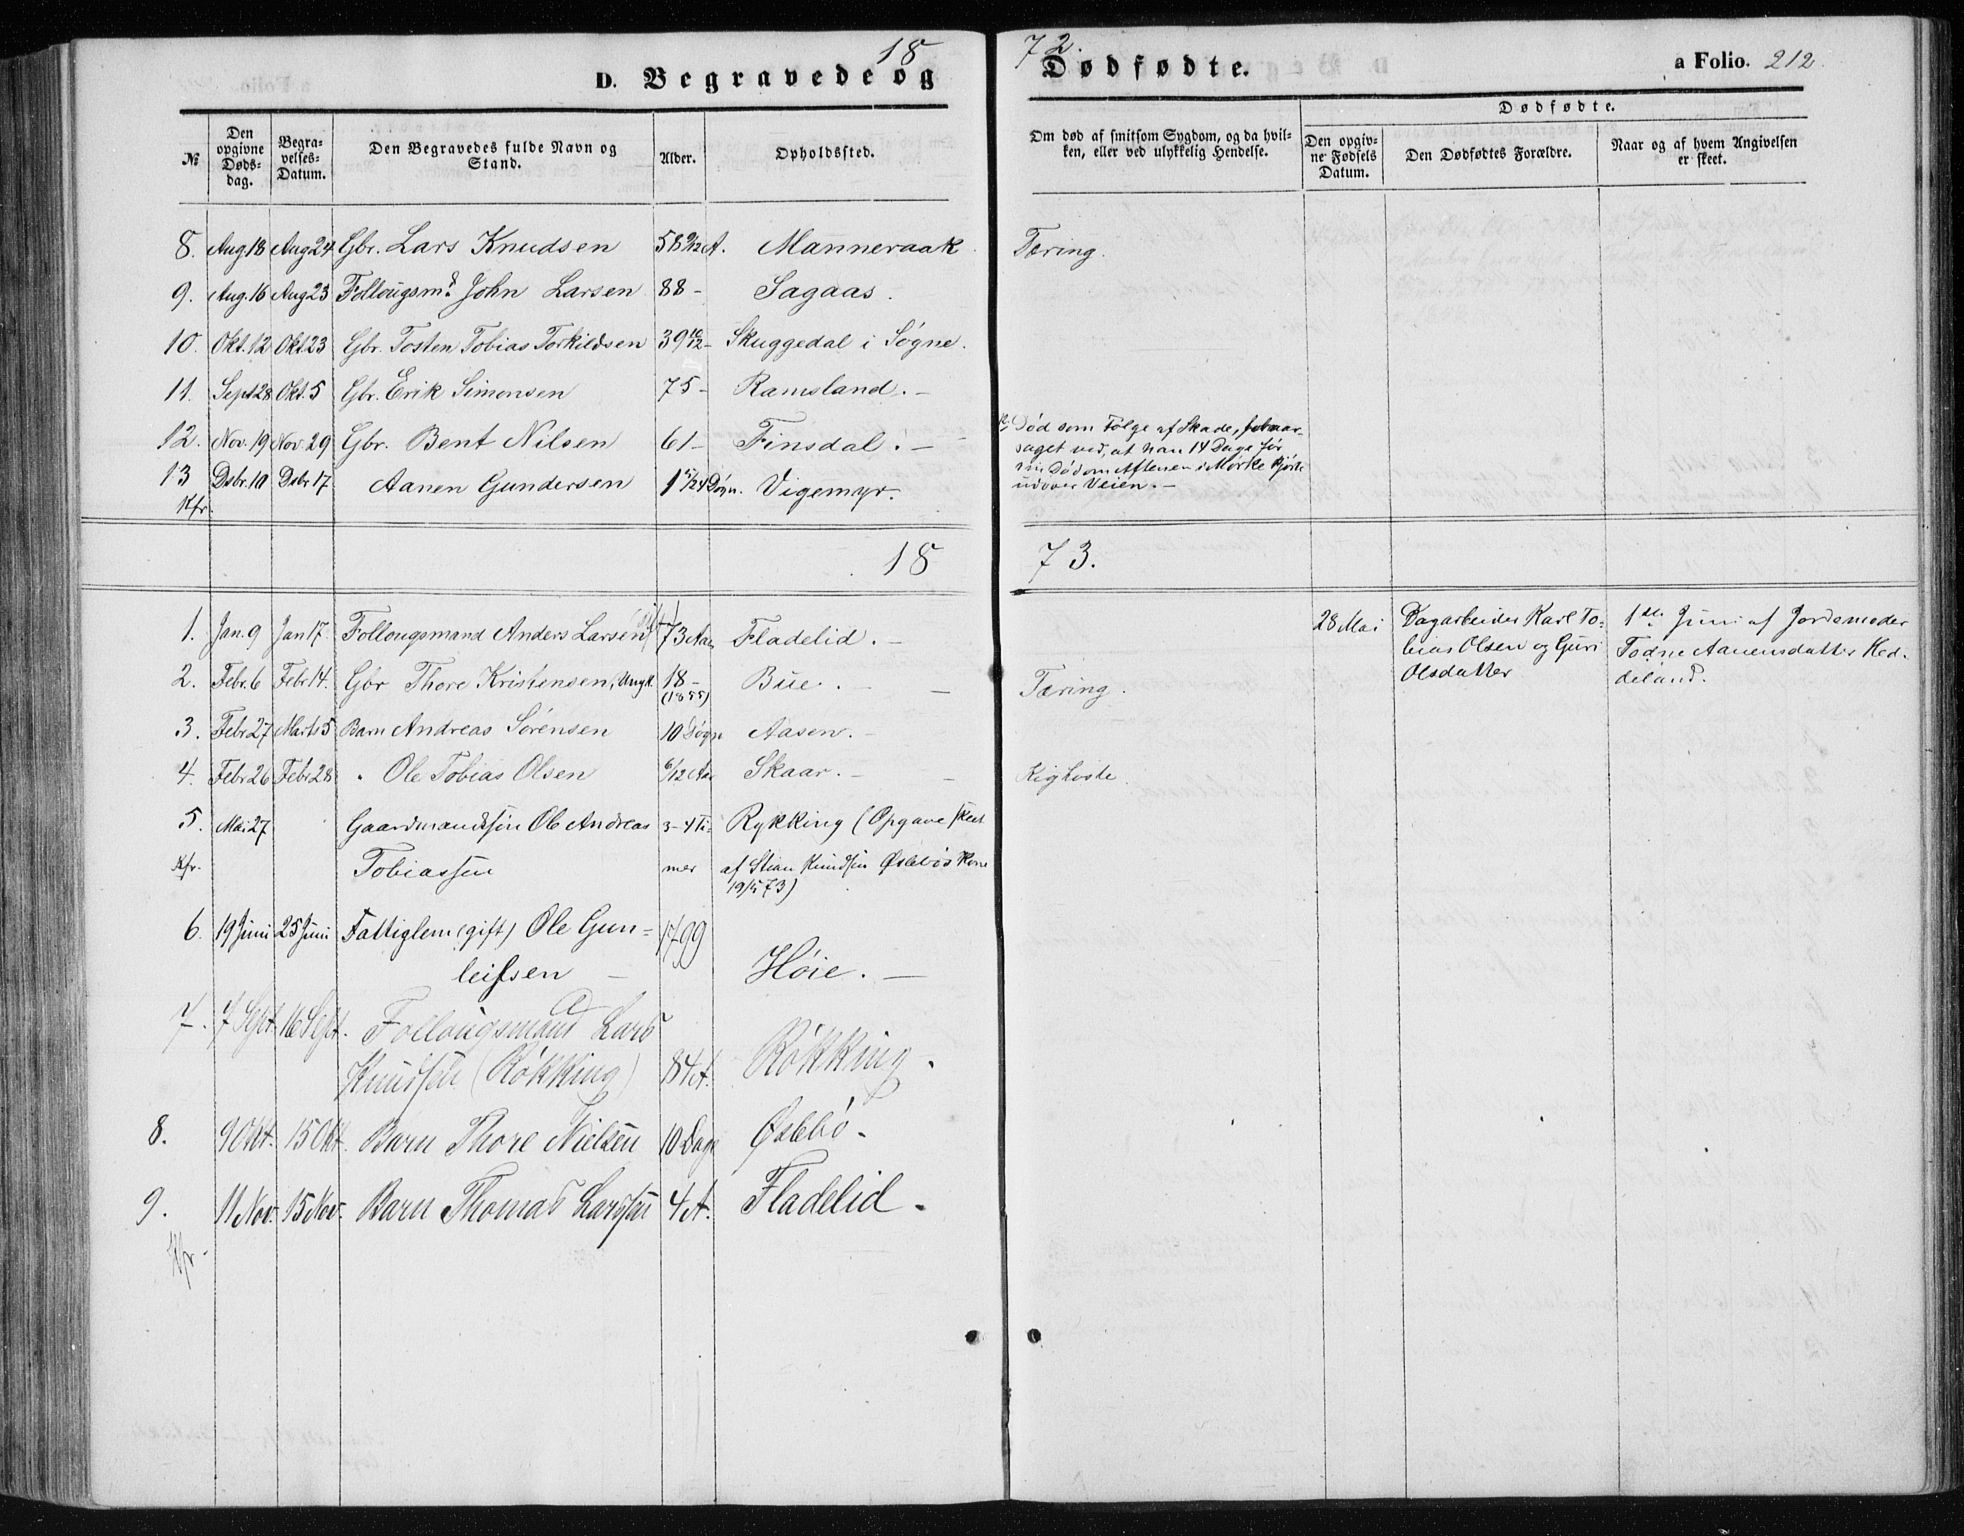 1872.
D. Begravede og Dødfødte.
a Folio. 212
№
Den opgivne Døds-dag.
Begra-velses-Datum.
Den Begravedes fulde Navn og Stand.
Alder.
Opholdssted.
Om død af smitsom Sygdom, og da hvil-
ken, eller ved ulykkelig Hendelse.
Dødfødte.
Den opgiv-
ne Fødsels
Datum.
Den Dødfødtes Forældre.
Naar og af hvem Angivelsen
er skeet.
8. Aug 18 Aug 24 Gbr. Lars Knudsen 58 9/12 A. Manneraak Tæring.
9. Aug. 16 Aug 23 Follougsmd John Larsen 88 - Sagaas.
10. Okt. 12 Okt. 23 Gbr. Tosten Tobias Torkildsen 39 10/12 - Skuggedal i Søgne.
11. Sept 28 Okt. 5 Gbr. Erik Simonsen 75 - Ramsland. -
12. Nov. 19 Nov. 29 Gbr. Bent Nilsen 61 - Finsdal. - Død som Følge af Skade, foraar-
saget ved, at han 14 Dage før
sin Død om Aftenen i Mørke kjørte
udover Veien. -
13 Dsbr. 10 Dsbr 17. Aanen Gundersen 1 5/24 Døgn. Vigemyr.
Kfr.
1873.
1. Jan. 9 Jan 17. Follougsmand Anders Larsen 73 Aar Fladelid. -
28 Mai Dagarbeider Karl To-
bias Olsen og Guri
Olsdatter
1ste Juni af Jordemoder
Todne Aanensdatter Hed-
deland.
2. Febr. 6 Febr 14. Gbr Thore Kristensen, Ungk. 18 - (1855) Bue. - Tæring.
3. Febr 27 Marts 5 Barn Andreas Sørensen 10 Døgn Aasen. -
4. Febr 26 Febr 28 " Ole Tobias Olsen 6/12 Aar Skaar. - Kighoste
5. Mai 27 Gaardmandssøn Ole Andreas 3-4 Ti- Rykking (Opgave skeet
Kfr. Tobiassen mer af Stian Knudsen Øslebøs Kone
19/5 73)
6. 19 Juni 25 Juni Fattiglem (gift) Ole Gun- 1799
leifsen - Høie. -
7. 7 Sept. 16 Sept. Follougsmand Lars
Knudsen (Røkking) 84 A. Røkking.
8. 9 Okt. 15 Okt. Barn Thore Nielsen 10 Dage Øslebø.
9. 11 Nov. 15 Nov. Barn Thomas Larssen 4 A. Fladelid.
Kfr.